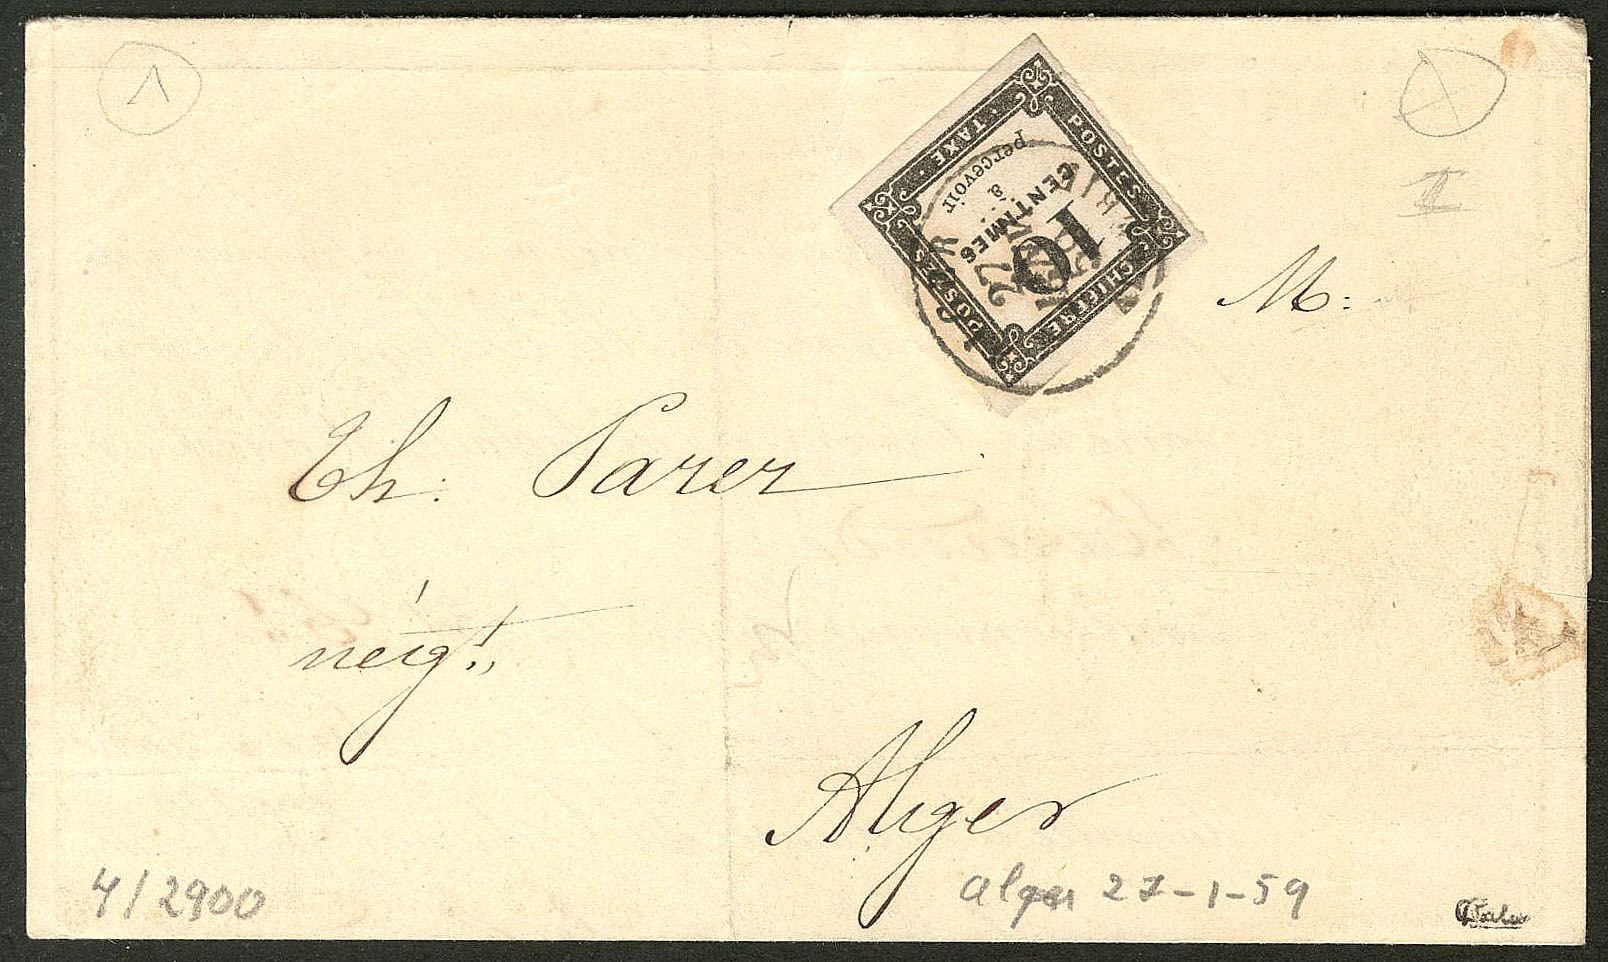 CHIFFRE
TAXE
POSTES
POSTES
10
CENTIMES
à
percevoir
27
M:
Th: Parer
négt.,
Alger
4/2900
alger 27-1-59